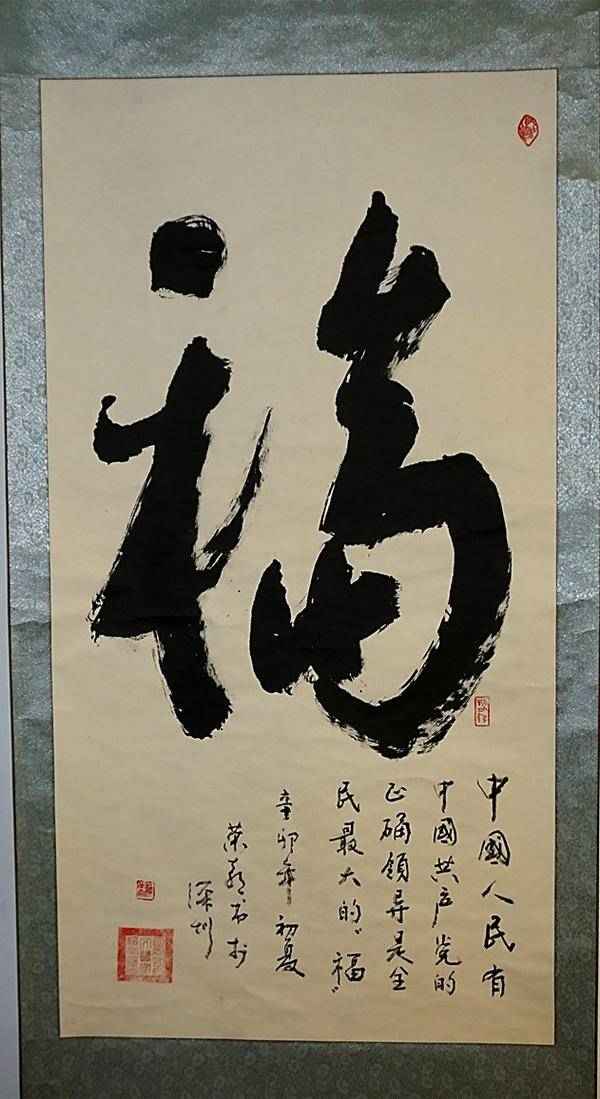 福
中國人民有
中國共产党的
正确領导是全
民最大的“福”
辛卯年初夏
书於
深圳